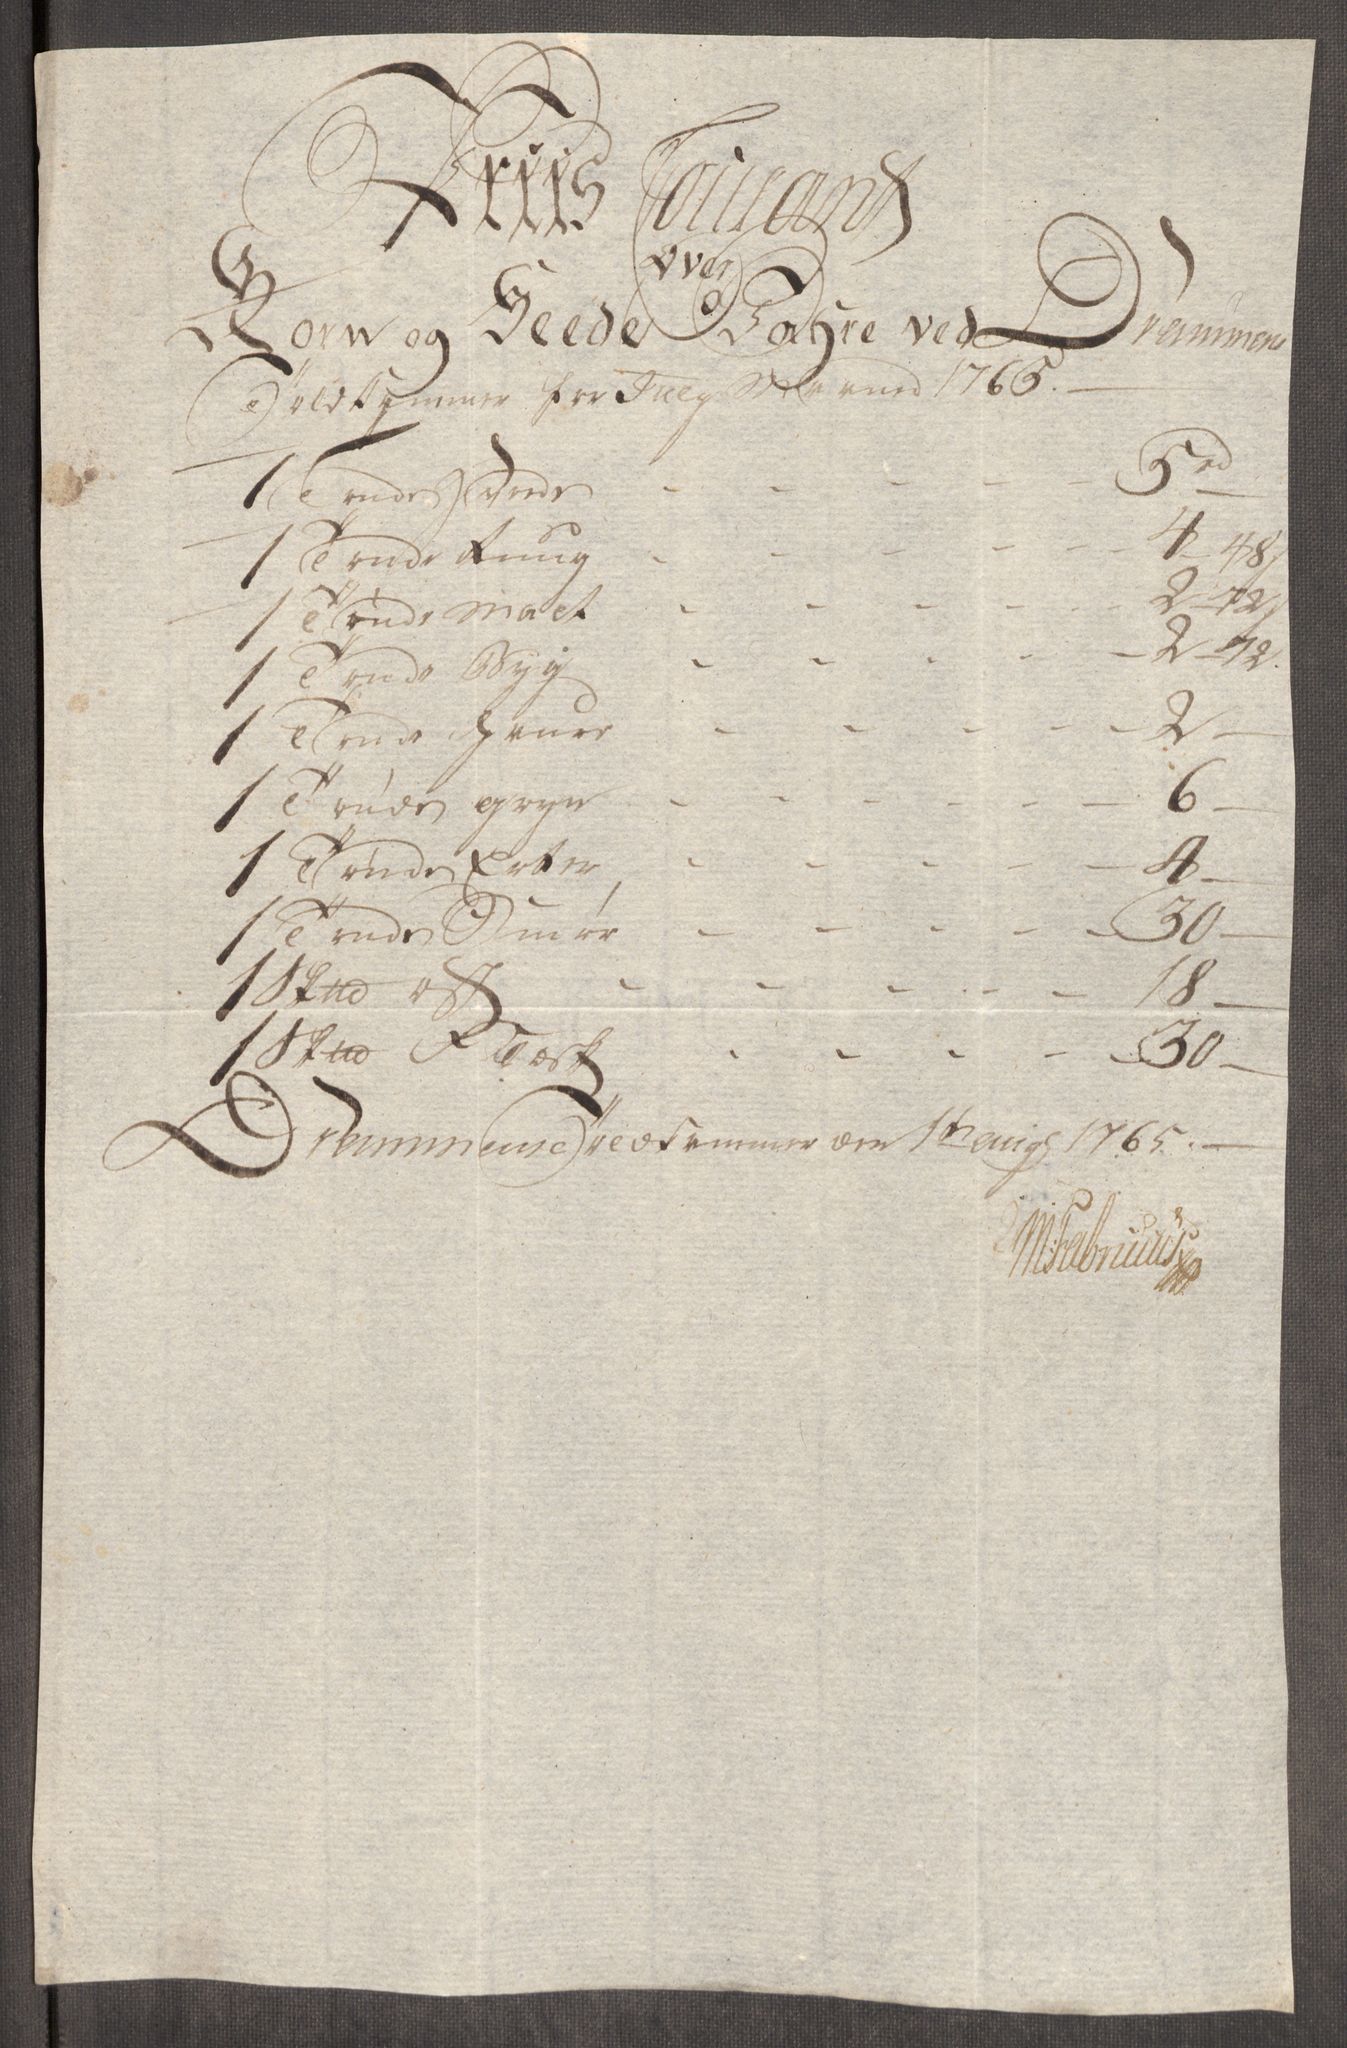 Priis Courant
over
Korn og Feede Vahre ved Drammens
Tøldkammer for July Maaned 1765.
1 Tønde Hvede - - - - - 5 rd
1 Tønde Rug - - - - - 4 - 48
1 Tønde Malt - - - - - 2 - 72
1 Tønde Byg - - - - - 2 - 72.
1 Tønde Havre - - - - - 2 -
1 Tønde gryn - - - - - 6 -
1 Tønde Erter - - - - - 4 -
1 Tønde Smør - - - - - 30 -
1 Skud ost - - - - - 18 -
1 Skud - - - - - 30 -
Drammens Toldkammer den 1th augs 1765. -
M: Fabritius